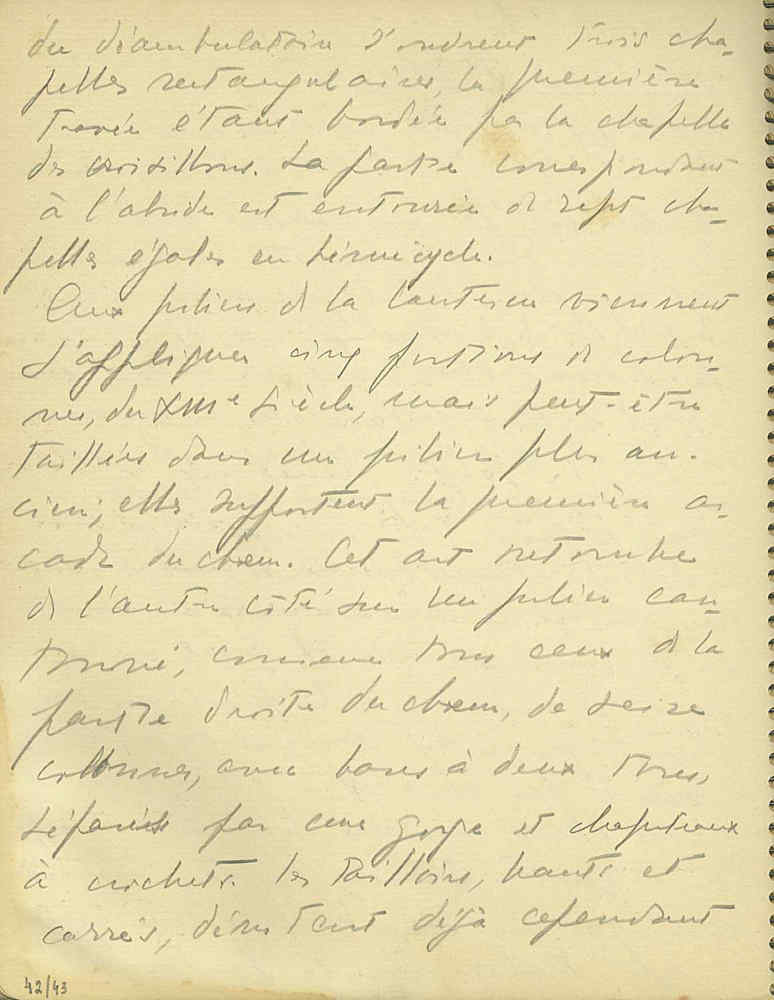 du déambulatoire s'ouvrent trois cha-
pelles rectangulaires, la première
travée étant bordée par la chapelle
des croisillons. La partie correspondant
à l'abside est entourée de sept cha-
pelles égales en hémicycle.
Aux piliers de la lanterne viennent
s'appliquer cinq portions de colon-
nes, du XIIIe siècle, mais peut-être
taillées dans un pilier plus an-
cien; elles supportent la première ar-
cade du chœur. Cet arc retombe
de l'autre côté sur un pilier can-
tonné, comme tous ceux de la
partie droite du chœur, de seize
colonnes, avec bases à deux tores,
séparés par une gorge et chapiteaux
à crochets. Les tailloirs, hauts et
carrés, déjà cependant
42/43